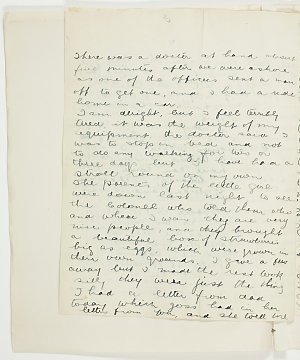 There was a doctor at hand about
five minutes after we were ashore
as one of the officers sent a man
off to get one, and I had a ride
home in a car.
I am alright, but I feel terribly
tired it was the weight of my
equipment the doctor said I
was to stop in bed and not
to do any walking for two or
three days but I have had a
stroll round on my own
The parents of the little girl
were down last night to see
the Colonel who told them who
and where I was, they are very
nice people, and they brought
a beautiful box of strawberries
big as eggs, which were grown in
their own grounds, I give a few
away but I made the rest look
silly they were just the thing
I had a letter from dad
today which Joss had in her
letter from and she told me